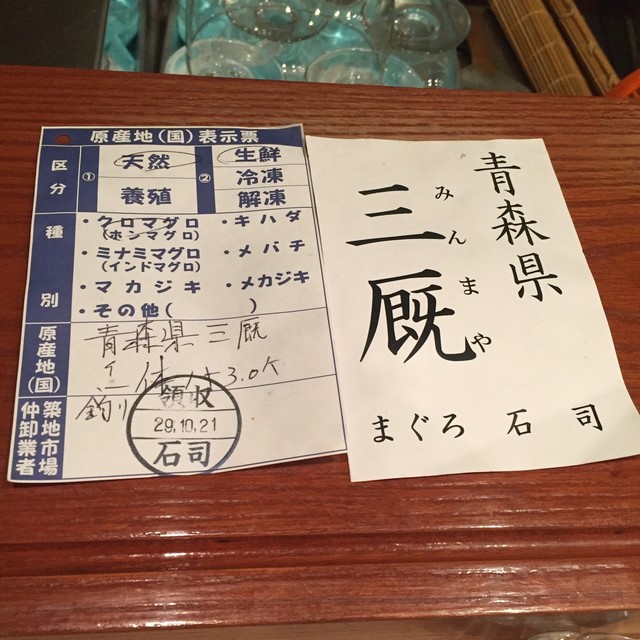 原産地(国)表示票
区分
① 天然
養殖
② 生鮮
冷凍
解凍
種別
・クロマグロ
(ホンマグロ)
・キハダ
・ミナミマグロ
(インドマグロ)
・メバチ
・マカジキ
・メカジキ
・その他( )
原産地(国)
青森県三厩
釣り
築地市場
仲卸業者
領収
29.10.21
石司
青森県
三厩
みんまや
まぐろ 石司